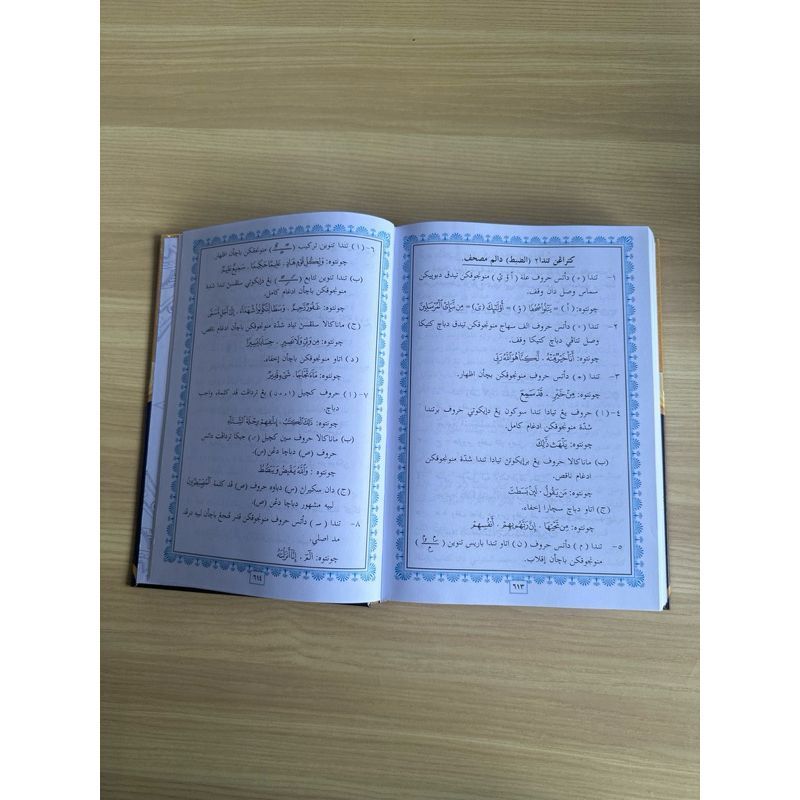 كتراڠن تندا٢ (الضبط) دالم مصحف.
١- تندا (ه) دأتس حروف علة (أ ؤ ئ) منونجوقكن تيدق دبوپيكن
سماس وصل دان وقف.
چونتوه: (أ) = يَتْلُوا۟ صُحُفًا (ؤ) = أُو۟لَٰٓئِكَ (ئ) = مِن نَّبَإِى۟ ٱلْمُرْسَلِينَ
٢- تندا (٠) دأتس حروف الف سهاج منونجوقكن تيدق دباچ كتيكا
وصل تتاڤي دباچ كتيكا وقف.
چونتوه: أَنَا۠ خَيْرٌ مِّنْهُ ، لَّٰكِنَّا۠ هُوَ ٱللَّهُ رَبِّى
٣- تندا (ح) دأتس حروف منونجوقكن بچأن اظهار.
چونتوه: مِنْ خَيْرٍ ، قَدْ سَمِعَ
٤- (١) حروف يڠ تيادا تندا سوكون يڠ دإيكوتي حروف برتندا
شدّة منونجوقكن ادغام كامل.
چونتوه: يَلْهَث ذَّٰلِكَ
(ب) ماناكالا حروف يڠ برإيكوتن تيادا تندا شدّة منونجوقكن
ادغام ناقص.
چونتوه: مَن يَقُولُ ، لَئِنۢ بَسَطتَ
(ج) اتاو دباچ سچارا إخفاء.
چونتوه: مِن تَحْتِهَا ، إِنَّ رَبَّهُم بِهِمْ ، أَنفُسِهِمْ
٥- تندا (م) دأتس حروف (ن) اتاو تندا باريس تنوين
منونجوقكن باچأن إقلاب.
٦١٣
٦- (١) تندا تنوين تركيب منونجوقكن باچأن اظهار.
چونتوه: وَلِكُلِّ قَوْمٍ هَادٍ ، عَلِيمًا حَكِيمًا ، سَمِيعٌ عَلِيمٌ
(ب) تندا تنوين تتابع يڠ دإيكوتي سلڤسن تندا شدة
منونجوقكن باچأن ادغام كامل.
چونتوه: غَفُورٌ رَّحِيمٌ ، وَسَطًا لِّتَكُونُوا۟ شُهَدَآءَ ،
(ج) ماناكالا سلڤسن تياد شدة منونجوقكن باچأن ادغام ناقص
چونتوه: مِن وَلِىٍّ وَلَا نَصِيرٍ ، حِسَابًا يَسِيرًا
(د) اتاو منونجوقكن باچأن إخفاء.
چونتوه: مَآءً ثَجَّاجًا ،
٧- (١) حروف كچيل (ا،و،ن) يڠ تردافت قد كلمة، واجب
دباچ.
چونتوه: ذَٰلِكَ ٱلْكِتَٰبُ ، إِۦلَٰفِهِمْ رِحْلَةَ ٱلشِّتَآءِ
(ب) ماناكالا حروف سين كچيل (س) جيكا تردافت دأتس
حروف (ص) دباچا دڠن (س).
چونتوه : وَٱللَّهُ يَقْبِضُ وَيَبْصُۜطُ
(ج) دان سكيراڽ (س) دباوه حروف (ص) قد كلمة ٱلْمُصَۣيْطِرُونَ
لبيه مشهور دباچا دڠن (ص).
٨- تندا (~) دأتس حروف منونجوقكن قدر ڤنجڠ باچأن لبيه درقد
مد اصلي.
چونتوه: الٓمٓ ، إِنَّآ أَنزَلْنَٰهُ
٦١٤